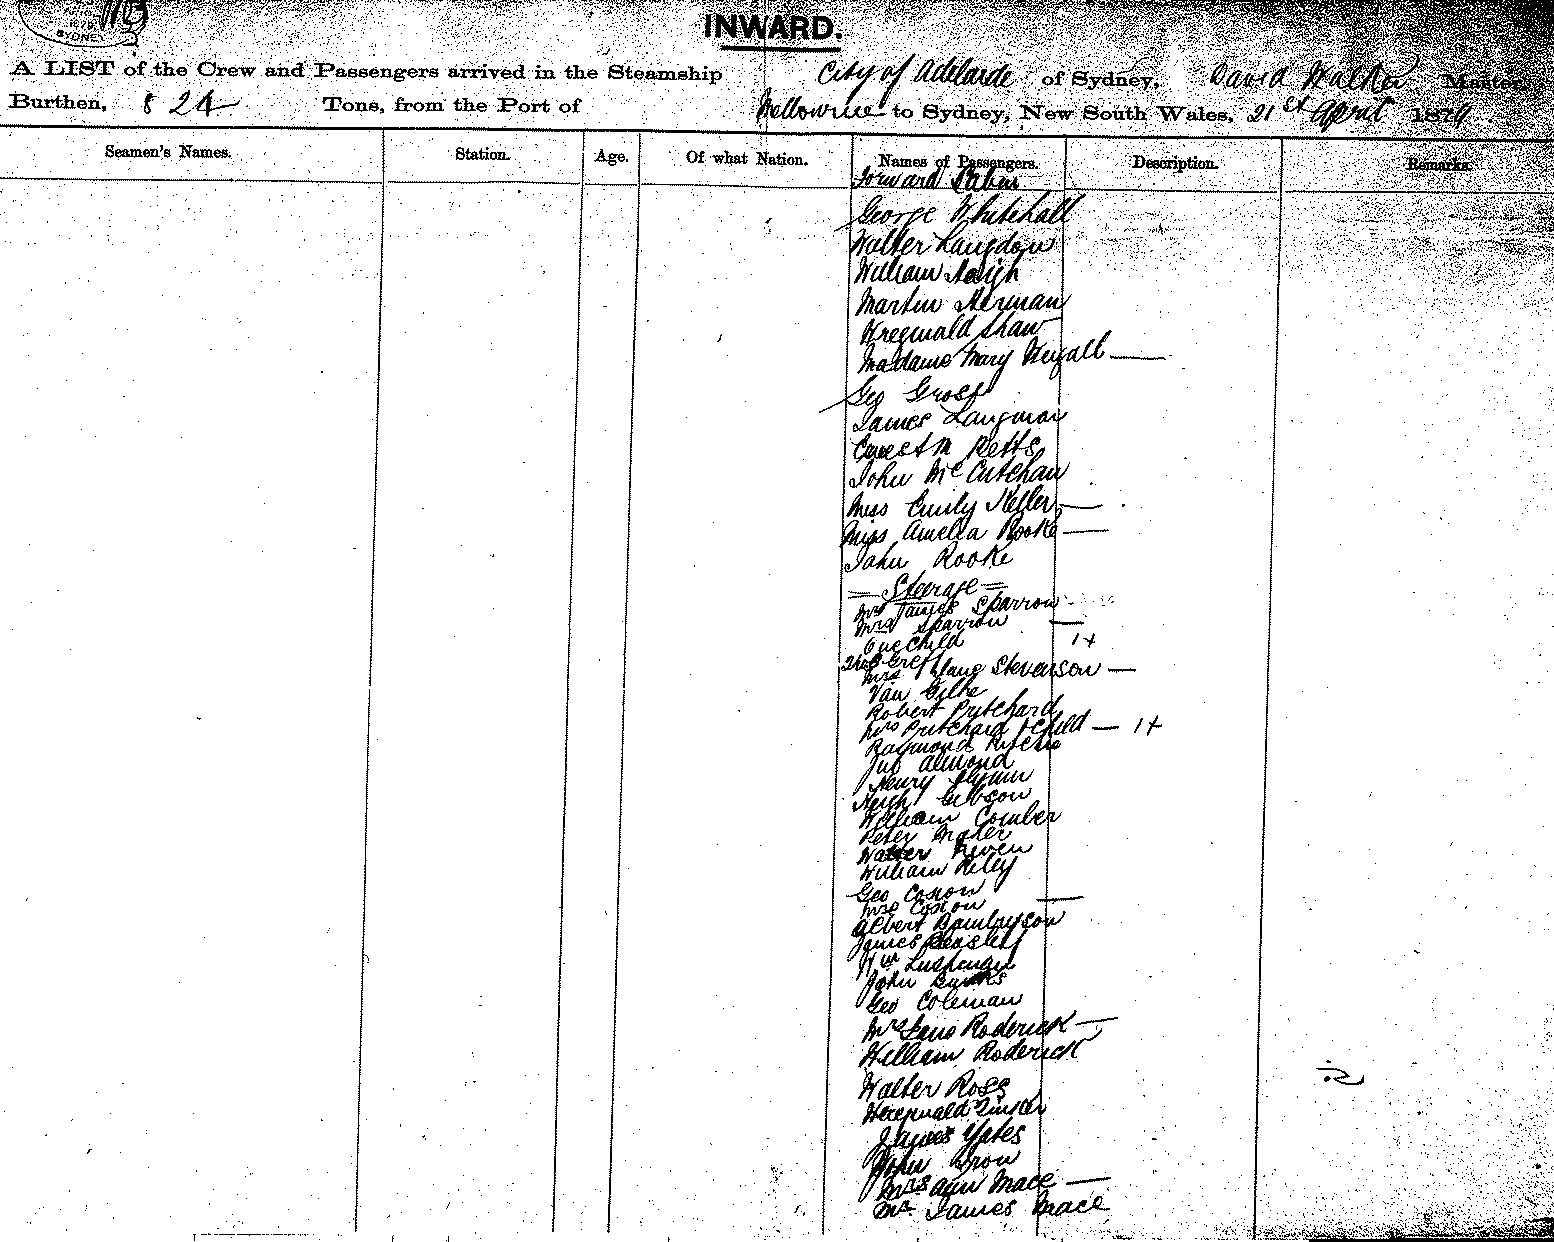 SYDNEY
INWARD.
A LIST of the Crew and Passengers arrived in the Steamship City of Adelaide of Sydney, David Walker Master,
Burthen, 824 Tons, from the Port of Melbourne to Sydney, New South Wales, 21st April 1879
Seamen's Names. Station. Age. Of what Nation. Names of Passengers. Description. Remarks.
Forward Cabin
George Whitehall
Walter Langdon
William Haigh
Martin Herman
Shaw
Madame Mary
Geo Gross
James Langman
Ernest M Betts
John McCutchan
Miss Emily Keller
Miss Amelia Rooke
John Rooke
= Steerage =
Mr James Sparrow
Mrs Sparrow
One Child 1+
Mrs Jane Stevenson
Van
Robert Pritchard
Mrs Pritchard + Child 1+
Raymond Ritchie
Almond
Henry Flynn
Hugh Gibson
William Comber
Peter
Walter Niven
William Riley
Geo Coxon
Mrs Coxon
Albert
James Beasley
Wm
John Banks
Geo Coleman
Mrs Jane Roderick
William Roderick
Walter Ross
James Yates
John Brow
Mrs Ann Mace
Mr James Mace